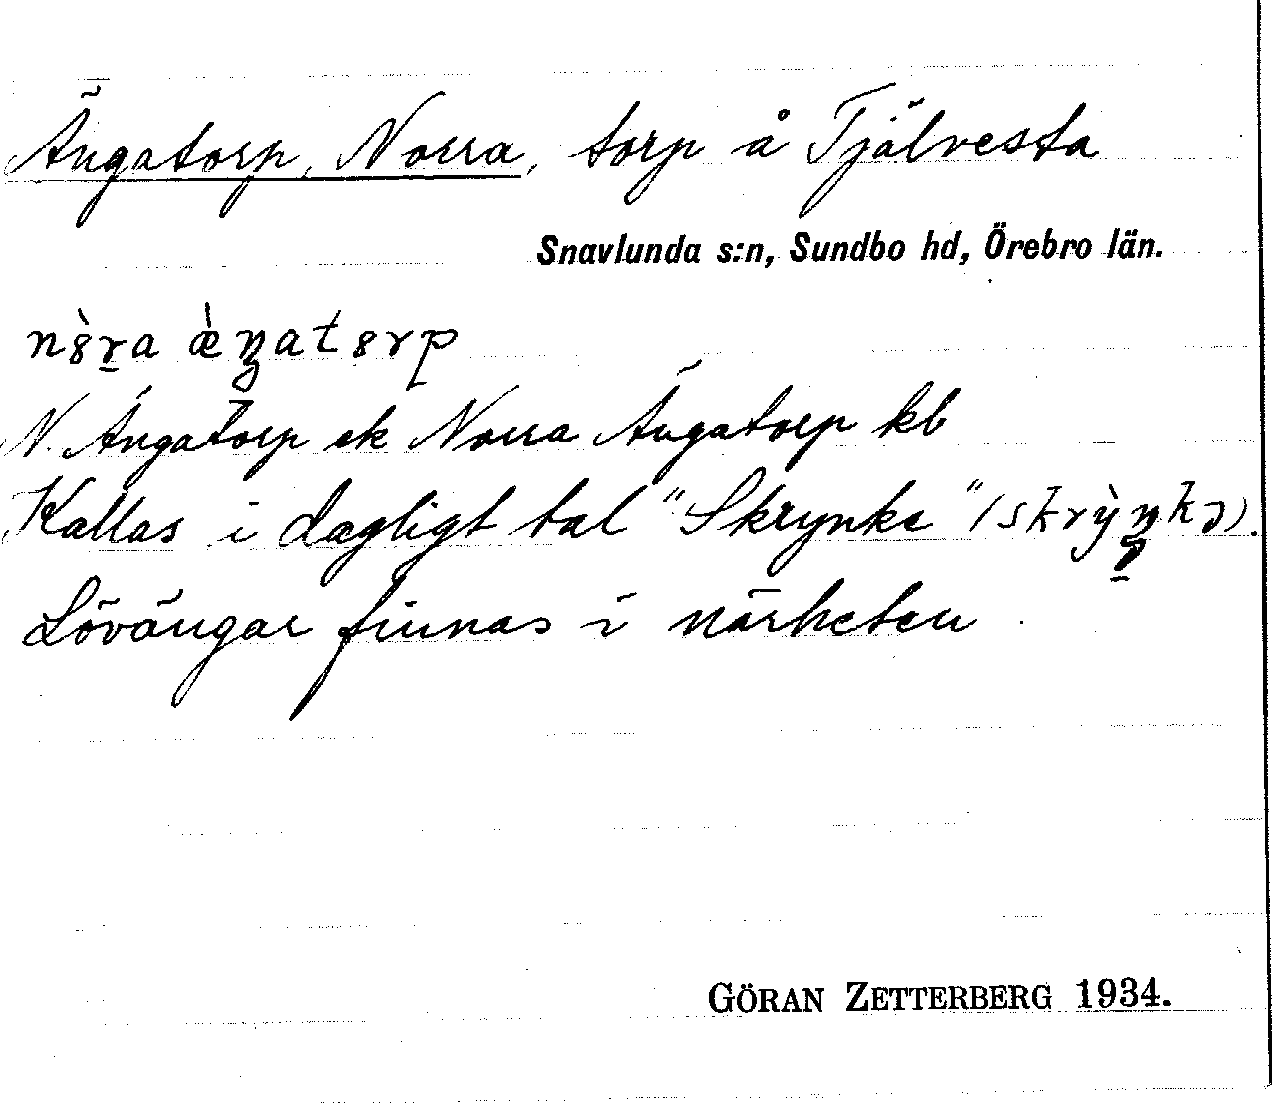 Ängatorp, Norra, torp å Tjälvesta
Snavlunda s:n, Sundbo hd, Örebro län.
n8̀r̠a æ̀ŋatɞrp
N. Ängatorp ek Norra Ängatorp kb
Kallas i dagligt tal "Skrynke" (skrỳŋkə).
Lövängar finnas i närheten
GÖRAN ZETTERBERG 1934.